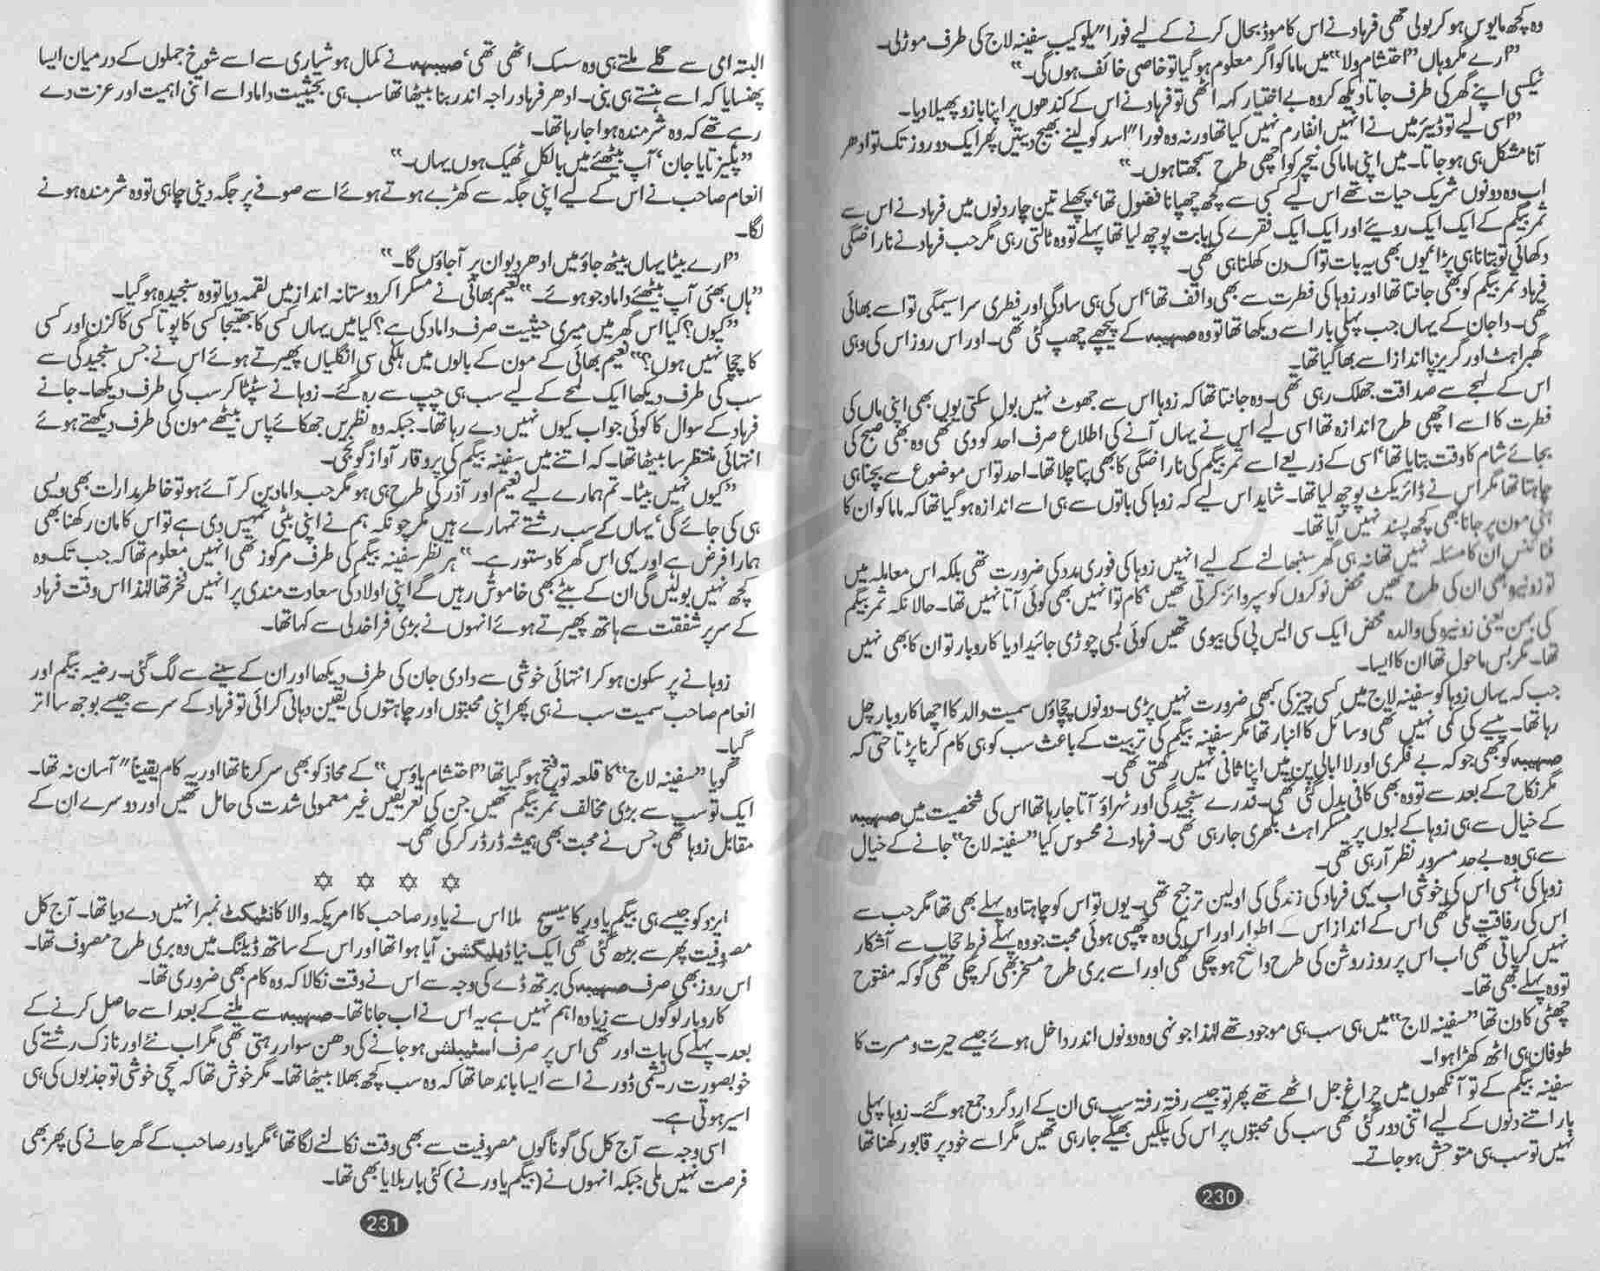 وہ کچھ مایوس ہو کر بولی تھی فرہاد نے اس کا موڈ بحال کرنے کے لیے فورا" یلو کیب سفینہ لاج کی طرف موڑ لی۔
"ارے مگر وہاں "احتشام ولا" میں ماما کو اگر معلوم ہو گیا تو خاصی خائف ہوں گی۔"
ٹیکسی اپنے گھر کی طرف جاتا دیکھ کر وہ بے اختیار کہہ اٹھی تو فرہاد نے اس کے کندھوں پر اپنا بازو پھیلا دیا۔
"اسی لیے تو ڈیئر میں نے انہیں انفارم نہیں کیا تھا ورنہ وہ فورا" اسد کو لینے بھیج دیتیں پھر ایک دو روز تک تو ادھر
آنا مشکل ہی ہو جاتا۔ میں اپنی ماما کی نیچر کو اچھی طرح سمجھتا ہوں۔"
اب وہ دونوں شریک حیات تھے اس لیے کسی سے کچھ چھپانا فضول تھا، پچھلے تین چار دنوں میں فرہاد نے اس سے
ثمر بیگم کے ایک ایک رویئے اور ایک ایک فقرے کی بابت پوچھ لیا تھا پہلے تو وہ ٹالتی رہی مگر جب فرہاد نے ناراضگی
دکھائی تو بتانا ہی پڑا یوں بھی یہ بات تو اک دن کھلنا ہی تھی۔
فرہاد ثمر بیگم کو بھی جانتا تھا اور زوہا کی فطرت سے بھی واقف تھا، اس کی ہی سادگی اور فطری سراسیمگی تو اسے بھائی
تھی۔ دا جان کے یہاں جب پہلی بار اسے دیکھا تھا تو وہ صہیبہ کے پیچھے چھپ گئی تھی۔ اور اس روز اس کی وہی
گھبراہٹ اور گریز پا انداز اسے بھا گیا تھا۔
اس کے لہجے سے صداقت جھلک رہی تھی۔ وہ جانتا تھا کہ زوہا اس سے جھوٹ نہیں بول سکتی یوں بھی اپنی ماں کی
فطرت کا اسے اچھی طرح اندازہ تھا اسی لیے اس نے یہاں آنے کی اطلاع صرف احد کو دی تھی وہ بھی صبح کی
بجائے شام کا وقت بتایا تھا، اسی کے ذریعے اسے ثمر بیگم کی ناراضگی کا بھی پتا چلا تھا۔ احد تو اس موضوع سے بچنا ہی
چاہتا تھا مگر اس نے ڈائریکٹ پوچھ لیا تھا۔ شاید اس لیے کہ زوہا کی باتوں سے ہی اسے اندازہ ہو گیا تھا کہ ماما کو ان کا
ہنی مون پر جانا بھی کچھ پسند نہیں آیا تھا۔
فنانس ان کا مسئلہ نہیں تھا نہ ہی گھر سنبھالنے کے لیے انہیں زوہا کی فوری مدد کی ضرورت تھی بلکہ اس معاملہ میں
تو زونیہ بھی ان کی طرح تھیں محض نوکروں کو سپروائز کرتی تھیں، کام تو انہیں بھی کوئی آتا نہیں تھا۔ حالانکہ ثمر بیگم
کی بہن یعنی زونیہ کی والدہ محض ایک سی ایس پی کی بیوی تھیں کوئی لمبی چوڑی جائیداد یا کاروبار تو ان کا بھی نہیں
تھا۔ مگر بس ماحول تھا ان کا ایسا۔
جب کہ یہاں زوہا کو سفینہ لاج میں کسی چیز کی کبھی ضرورت نہیں پڑی۔ دونوں چچاؤں سمیت والد کا اچھا کاروبار چل
رہا تھا۔ پیسے کی کمی نہیں تھی وسائل کا انبار تھا مگر سفینہ بیگم کی تربیت کے باعث سب کو ہی کام کرنا پڑتا حتیٰ کہ
صہیبہ کو بھی جو کہ بے فکری اور لا ابالی پن میں اپنا ثانی نہیں رکھتی تھی۔
مگر نکاح کے بعد سے تو وہ بھی کافی بدل گئی تھی۔ قدرے سنجیدگی اور ٹھہراؤ آتا جا رہا تھا اس کی شخصیت میں صہیبہ
کے خیال سے ہی زوہا کے لبوں پر مسکراہٹ بکھری جا رہی تھی۔ فرہاد نے محسوس کیا "سفینہ لاج" جانے کے خیال
سے ہی وہ بے حد مسرور نظر آ رہی تھی۔
زوہا کی ہنسی اس کی خوشی اب یہی فرہاد کی زندگی کی اولین ترجیح تھی۔ یوں تو اس کو چاہتا وہ پہلے بھی تھا مگر جب سے
اس کی رفاقت ملی تھی اس کے انداز اس کے اطوار اور اس کی وہ چھپی ہوئی محبت جو وہ پہلے فرط حجاب سے آشکار
نہیں کر پاتی تھی اب اس پر روز روشن کی طرح واضح ہو چکی تھی اور اسے بری طرح مسخر بھی کر چکی تھی گو کہ مفتوح
تو وہ پہلے بھی تھا۔
چھٹی کا دن تھا "سفینہ لاج" میں ہی سب ہی موجود تھے لہٰذا جونہی وہ دونوں اندر داخل ہوئے جیسے حیرت و مسرت کا
طوفان ہی اٹھ کھڑا ہوا۔
سفینہ بیگم کے تو آنکھوں میں چراغ جل اٹھے تھے پھر تو جیسے رفتہ رفتہ سب ہی ان کے ارد گرد جمع ہو گئے۔ زوہا پہلی
بار اتنے دنوں کے لیے اتنی دور گئی تھی سب کی محبتوں پر اس کی پلکیں بھیگے جا رہی تھیں مگر اسے خود پر قابو رکھنا تھا
نہیں تو سب ہی متوحش ہو جاتے۔
230
البتہ امی سے گلے ملتے ہی وہ سسک اٹھی تھی، صہیبہ نے کمال ہوشیاری سے اسے شوخ جملوں کے درمیان ایسا
پھنسایا کہ اسے ہنستے ہی بنی۔ ادھر فرہاد راجہ اندر بنا بیٹھا تھا سب ہی بحیثیت داماد اسے اتنی اہمیت اور عزت دے
رہے تھے کہ وہ شرمندہ ہوا جا رہا تھا۔
"پلیز تایا جان، آپ بیٹھئے میں بالکل ٹھیک ہوں یہاں۔"
انعام صاحب نے اس کے لیے اپنی جگہ سے کھڑے ہوتے ہوئے اسے صوفے پر جگہ دینی چاہی تو وہ شرمندہ ہونے
لگا۔
"ارے بیٹا یہاں بیٹھ جاؤ میں ادھر دیوان پر آ جاؤں گا۔"
"ہاں بھئی آپ بیٹھئے داماد جو ہوئے۔" نعیم بھائی نے مسکرا کر دوستانہ انداز میں لقمہ دیا تو وہ سنجیدہ ہو گیا۔
"کیوں؟ کیا اس گھر میں میری حیثیت صرف داماد کی ہے؟ کیا میں یہاں کسی کا بھتیجا کسی کا پوتا کسی کا کزن اور کسی
کا چچا نہیں ہوں؟" نعیم بھائی کے مون کے بالوں میں ہلکی سی انگلیاں پھیرتے ہوئے اس نے جس سنجیدگی سے
سب کی طرف دیکھا ایک لمحے کے لیے سب ہی چپ سے رہ گئے۔ زوہا نے سٹپٹا کر سب کی طرف دیکھا۔ جانے
فرہاد کے سوال کا کوئی جواب کیوں نہیں دے رہا تھا۔ جبکہ وہ نظریں جھکائے پاس بیٹھے مون کی طرف دیکھتے ہوئے
انتہائی منتظر سا بیٹھا تھا۔ کہ اتنے میں سفینہ بیگم کی پروقار آواز گونجی۔
"کیوں نہیں بیٹا۔ تم ہمارے لیے نعیم اور آذر کی طرح ہی ہو مگر جب داماد بن کر آئے ہو تو خاطر مدارات بھی ویسی
ہی کی جائے گی، یہاں کے سب رشتے تمہارے ہیں مگر چونکہ ہم نے اپنی بیٹی تمہیں دی ہے تو اس کا مان رکھنا بھی
ہمارا فرض ہے اور یہی اس گھر کا دستور ہے۔" ہر نظر سفینہ بیگم کی طرف مرکوز تھی انہیں معلوم تھا کہ جب تک وہ
کچھ نہیں بولیں گی ان کے بیٹے بھی خاموش رہیں گے اپنی اولاد کی سعادت مندی پر انہیں فخر تھا لہٰذا اس وقت فرہاد
کے سر پر شفقت سے ہاتھ پھیرتے ہوئے انہوں نے بڑی فراخدلی سے کہا تھا۔
زوہا نے پرسکون ہو کر انتہائی خوشی سے دادی جان کی طرف دیکھا اور ان کے سینے سے لگ گئی۔ رضیہ بیگم اور
انعام صاحب سمیت سب نے ہی پھر اپنی محبتوں اور چاہتوں کی یقین دہانی کرائی تو فرہاد کے سر سے جیسے بوجھ سا اتر
گیا۔
گویا "سفینہ لاج" کا قلعہ تو فتح ہو گیا تھا "احتشام ہاؤس" کے محاذ کو بھی سر کرنا تھا اور یہ کام یقینا" آسان نہ تھا۔
ایک تو سب سے بڑی مخالف ثمر بیگم تھیں جن کی تعریفیں غیر معمولی شدت کی حامل تھیں اور دوسرے ان کے
مقابل زوہا تھی جس نے محبت بھی ہمیشہ ڈر ڈر کر کی تھی۔
✡ ✡ ✡ ✡
ایزد کو جیسے ہی بیگم یاور کا میسج ملا اس نے یاور صاحب کا امریکہ والا کانٹیکٹ نمبر انہیں دے دیا تھا۔ آج کل
مصروفیت پھر سے بڑھ گئی تھی ایک نیا ڈیلیگیشن آیا ہوا تھا اور اس کے ساتھ ڈیلنگ میں وہ بری طرح مصروف تھا۔
اس روز بھی صرف صہیبہ کی برتھ ڈے کی وجہ سے اس نے وقت نکالا کہ وہ کام بھی ضروری تھا۔
کاروبار لوگوں سے زیادہ اہم نہیں ہے یہ اس نے اب جانا تھا۔ صہیبہ سے ملنے کے بعد اسے حاصل کرنے کے
بعد۔ پہلے کی بات اور تھی اس پر صرف اسٹیبلش ہو جانے کی دھن سوار رہتی تھی مگر اب نئے اور نازک رشتے کی
خوبصورت ریشمی ڈور نے اسے ایسا باندھا تھا کہ وہ سب کچھ بھلا بیٹھا تھا۔ مگر خوش تھا کہ سچی خوشی تو جذبوں کی ہی
اسیر ہوتی ہے۔
اسی وجہ سے آج کل کی گوناگوں مصروفیت سے بھی وقت نکالنے لگا تھا، مگر یاور صاحب کے گھر جانے کی پھر بھی
فرصت نہیں ملی جبکہ انہوں نے (بیگم یاور نے) کئی بار بلایا بھی تھا۔
231